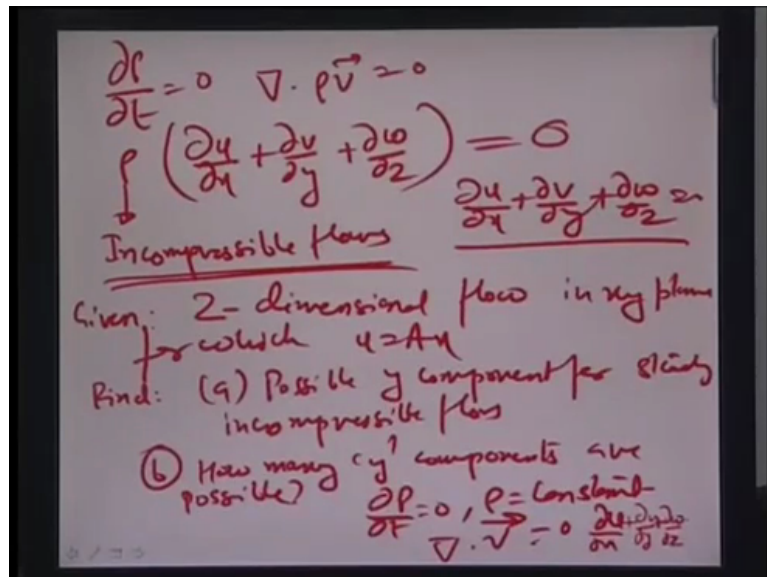 ∂ρ/∂t = 0 ∇·ρV⃗ = 0
ρ (∂u/∂x + ∂v/∂y + ∂w/∂z) = 0
∂u/∂x + ∂v/∂y + ∂w/∂z =
Incompressible flows
Given: 2-dimensional flow in xy plane
for which u = Ax
Find: (a) Possible y component for steady
incompressible flow
(b) How many 'y' components are
possible?
∂ρ/∂t = 0, ρ = Constant
∇·V⃗ = 0 ∂u/∂x + ∂v/∂y + ∂w/∂z